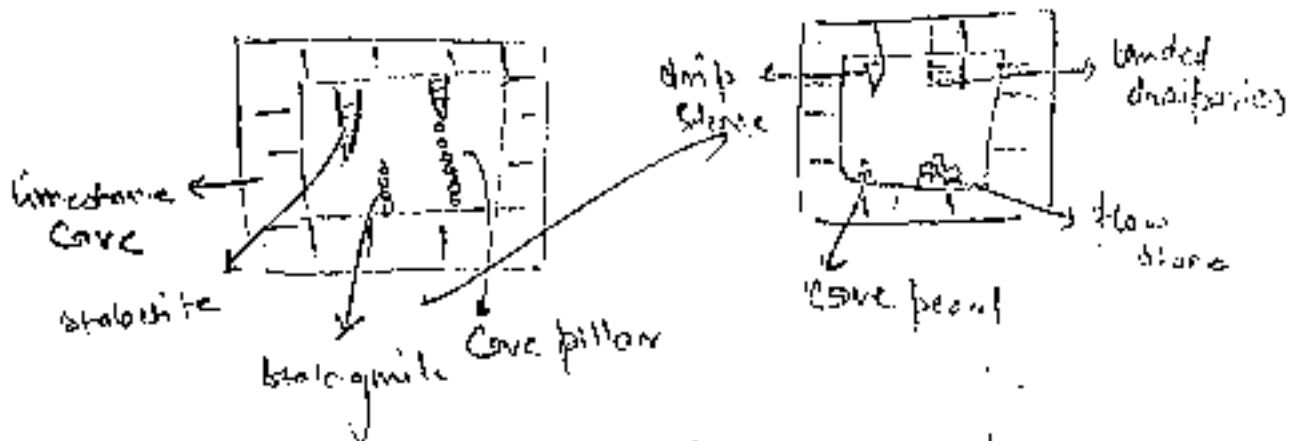 limestone
Cave
stalactite
stalagmite
Cave pillar
drip
stone
banded
draiparies
flow
stone
Cave pearl